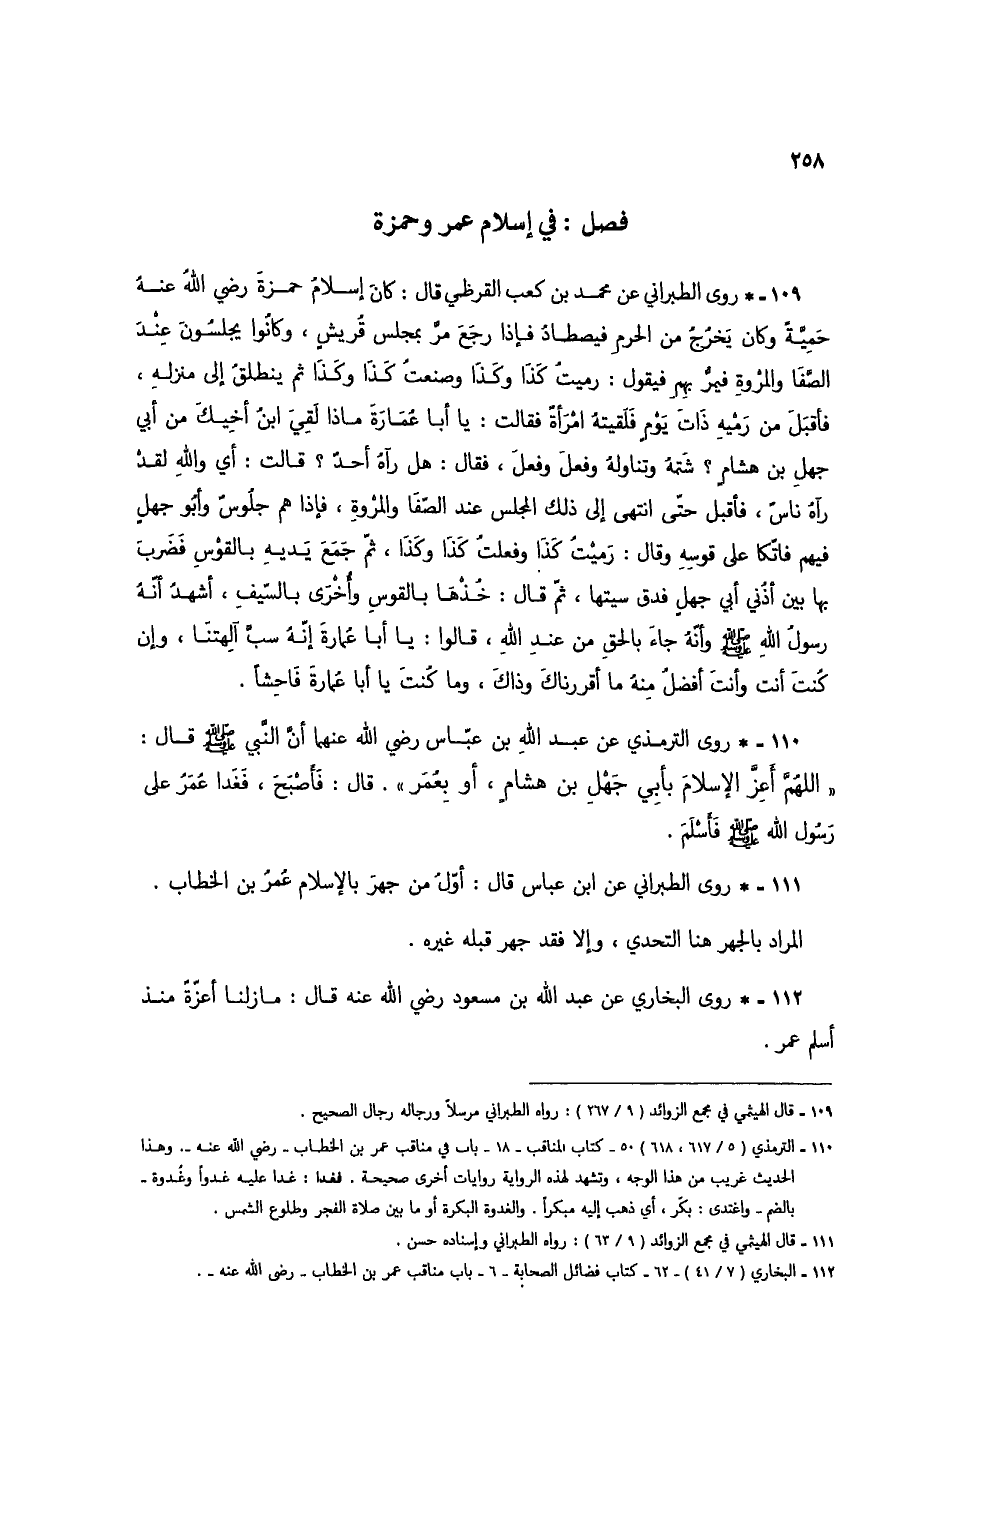 ٢٥٨
فصل : في إسلام عمر وحمزة
١٠٩ ـ * روى الطبراني عن محمد بن كعب القرظي قال : كانَ إسلامُ حمزةَ رضي اللهُ عنهُ
حَمِيَّةً وكان يَخرُجُ من الحرمِ فيصطادُ فإذا رجَعَ مرَّ بمجلس قُريشٍ ، وكانُوا يجلسُونَ عِنْدَ
الصَّفَا والمرْوةِ فيمرُّ بهِم فيقول : رميتُ كَذَا وكَذَا وصنعتُ كَذَا وكَذَا ثم ينطلقُ إلى منزلهِ ،
فأقبَلَ من رَمْيِهِ ذَاتَ يَوْمٍ فَلَقيتهُ امْرَأةٌ فقالت : يا أبا عُمَارَةَ ماذا لَقِيَ ابنُ أخيكَ من أبي
جهلِ بن هشامٍ ؟ شَتَمهُ وتناولهُ وفعلَ وفعلَ ، فقال : هل رآهُ أحدٌ ؟ قالت : أي واللهِ لقدْ
رآهُ ناسٌ ، فأقبل حتّى انتهى إلى ذلك المجلس عند الصَّفَا والمرْوةِ ، فإذا هم جلُوسٌ وأبُو جهلٍ
فيهم فاتّكا على قوسِهِ وقال : رَميْتُ كَذَا وفعلتُ كَذَا وكَذَا ، ثمّ جَمَعَ يَديهِ بالقوْسِ فَضَربَ
بها بين أذُني أبي جهلٍ فدق سيتها ، ثمّ قال : خُذْهَا بالقوسِ وأُخْرَى بالسّيفِ ، أشهدُ أنّهُ
رسولُ اللهِ ﷺ وأنّهُ جاءَ بالحقِ من عندِ اللهِ ، قالوا : يا أبا عُمارةَ إنّهُ سبَّ آلهتنَا ، وإن
كُنتَ أنت وأنتَ أفضلُ مِنهُ ما أقررناكَ وذاكَ ، وما كُنتَ يا أبا عُمارةَ فَاحِشاً .
١١٠ ـ * روى الترمذي عن عبد اللهِ بن عبّاس رضي الله عنهما أنَّ النَّبي ﷺ قال :
« اللهُمَّ أَعِزَّ الإسلامَ بأبي جَهْلِ بن هشامٍ ، أو بِعُمَر » . قال : فَأَصْبَحَ ، فَغَدا عُمَرُ على
رَسُول الله ﷺ فَأَسْلَمَ .
١١١ ـ * روى الطبراني عن ابن عباس قال : أوّلُ من جهرَ بالإسلام عُمرُ بن الخطاب .
المراد بالجهر هنا التحدي ، وإلا فقد جهر قبله غيره .
١١٢ ـ * روى البخاري عن عبد الله بن مسعود رضي الله عنه قال : مازلنا أعزّةً منذ
أسلم عمر .
١٠٩ ـ قال الهيثمي في مجمع الزوائد ( ٩ / ٢٦٧ ) : رواه الطبراني مرسلاً ورجاله رجال الصحيح .
١١٠ ـ الترمذي ( ٥ / ٦١٧ ، ٦١٨ ) ٥٠ ـ كتاب المناقب ـ ١٨ ـ باب في مناقب عمر بن الخطاب ـ رضي الله عنه ـ. وهذا
الحديث غريب من هذا الوجه ، وتشهد لهذه الرواية روايات أخرى صحيحة . فغدا : غدا عليه غدواً وغُدوة ـ
بالضم ـ واغتدى : بكّر ، أي ذهب إليه مبكراً . والغدوة البكرة أو ما بين صلاة الفجر وطلوع الشمس .
١١١ ـ قال الهيثمي في مجمع الزوائد ( ٩ / ٦٣ ) : رواه الطبراني وإسناده حسن .
١١٢ ـ البخاري ( ٧ / ٤١ ) ـ ٦٢ ـ كتاب فضائل الصحابة ـ ٦ ـ باب مناقب عمر بن الخطاب ـ رضي الله عنه ـ .